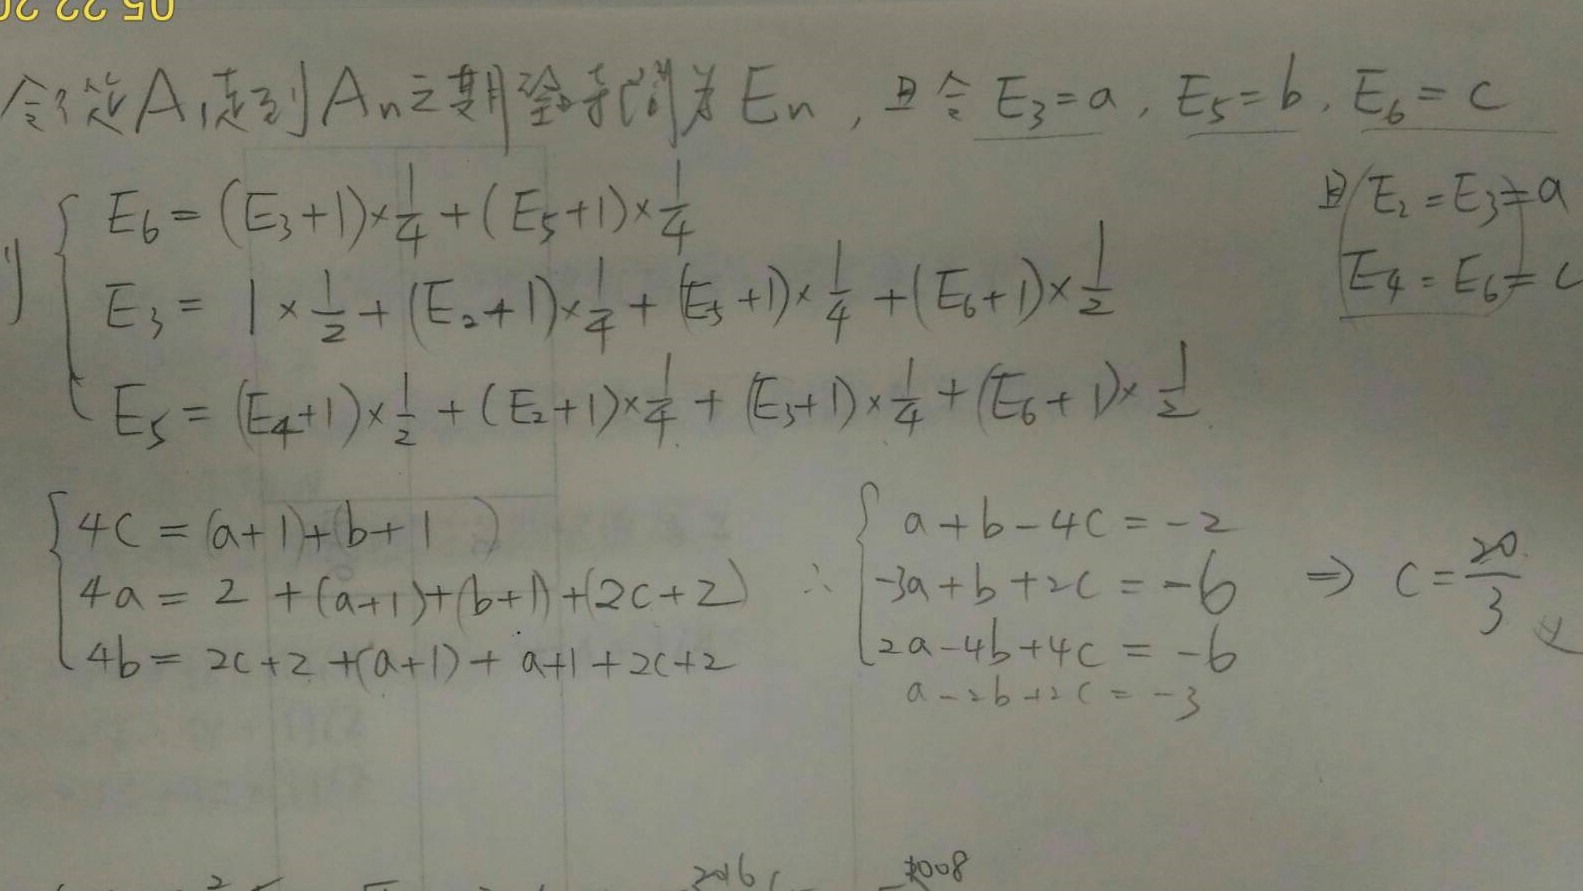 05 22 20
令從A₁走到Aₙ之期望時間為Eₙ,且令 E₃=a, E₅=b, E₆=c
且 E₂=E₃=a
E₄=E₆=c
則 E₆=(E₃+1)×1/4+(E₅+1)×1/4
E₃= 1×1/2+(E₂+1)×1/4+(E₅+1)×1/4+(E₆+1)×1/2
E₅=(E₄+1)×1/2+(E₂+1)×1/4+(E₃+1)×1/4+(E₆+1)×1/2
4c=(a+1)+(b+1)
4a=2+(a+1)+(b+1)+(2c+2)
4b=2c+2+(a+1)+a+1+2c+2
∴ a+b-4c=-2
-3a+b+2c=-6 ⇒ c=20/3
2a-4b+4c=-6
a-2b+2c=-3
2016
1008